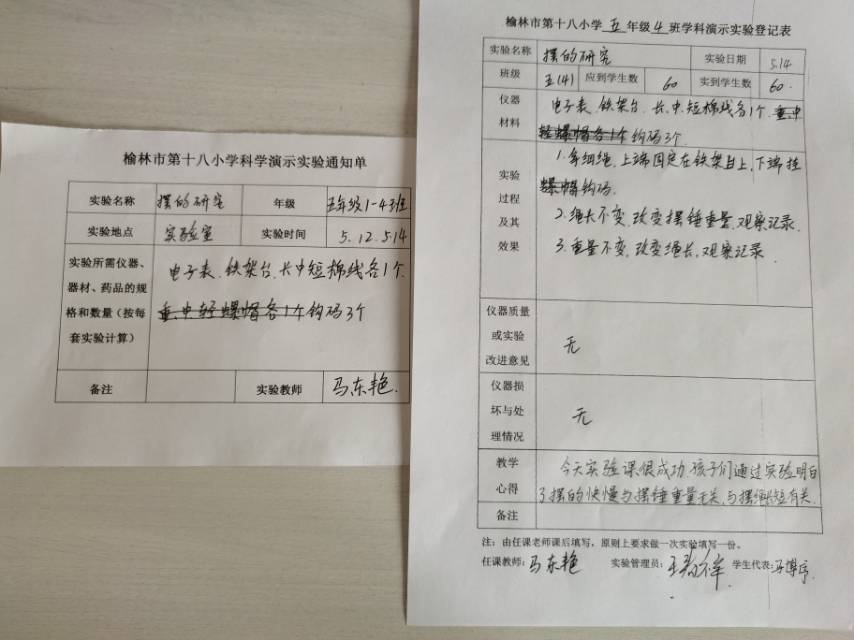 榆林市第十八小学科学演示实验通知单
实验名称 摆的研究 年级 五年级1-4班
实验地点 实验室 实验时间 5.12. 5.14
实验所需仪器、
器材、药品的规
格和数量（按每
套实验计算）
电子表、铁架台、长中短棉线各1个.
重中轻螺帽各1个钩码3个
备注 实验教师 马东艳.
榆林市第十八小学五年级4班学科演示实验登记表
实验名称 摆的研究 实验日期 5.14
班级 五(4) 应到学生数 60 实到学生数 60.
仪器
材料
电子表、铁架台、长.中.短棉线各1个.重.中
轻螺帽各1个 钩码3个.
实验
过程
及其
效果
1.等细绳,上端固定在铁架台上,下端挂
螺帽钩码.
2.绳长不变,改变摆锤重量,观察记录.
3.重量不变,改变绳长,观察记录.
仪器质量
或实验
改进意见
无
仪器损
坏与处
理情况
无
教学
心得
今天实验课很成功,孩子们通过实验明白
了摆的快慢与摆锤重量无关,与摆绳长短有关.
备注
注：由任课老师课后填写，原则上要求做一次实验填写一份。
任课教师：马东艳 实验管理员： 学生代表：马博